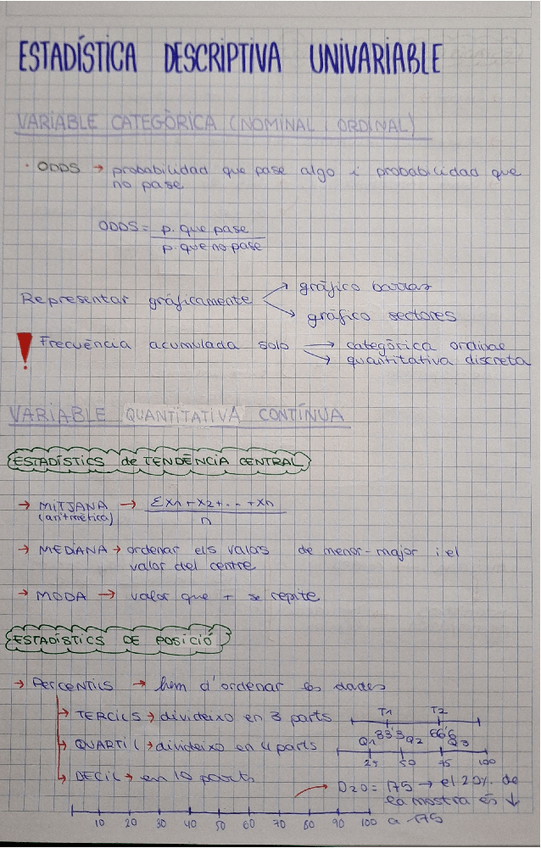 ESTADÍSTICA DESCRIPTIVA UNIVARIABLE
VARIABLE CATEGÒRICA (NOMINAL i ORDINAL)
· ODDS → probabilidad que pase algo i probabilidad que
no pase
ODDS = p. que pase
p. que no pase
gráfico barras
Representar gráficamente
gráfico sectores
! Frecuència acumulada solo → categòrica ordinal
→ quantitativa discreta
VARIABLE QUANTITATIVA CONTÍNUA
ESTADÍSTICS de TENDÈNCIA CENTRAL
→ MITJANA → Σx1+x2+...+xn
(aritmética) n
→ MEDIANA → ordenar els valors de menor-major i el
valor del centre
→ MODA → valor que + se repite
ESTADÍSTICS DE POSICIÓ
→ PERCENTILS → hem d'ordenar les dades
→ TERCILS → divideixo en 3 parts T1 T2
33'3 66'6
→ QUARTIL → divideixo en 4 parts Q1 Q2 Q3
25 50 75 100
→ DECIL → en 10 parts
D20 = 175 → el 20% de
la mostra és ↓
a 175
10 20 30 40 50 60 70 80 90 100